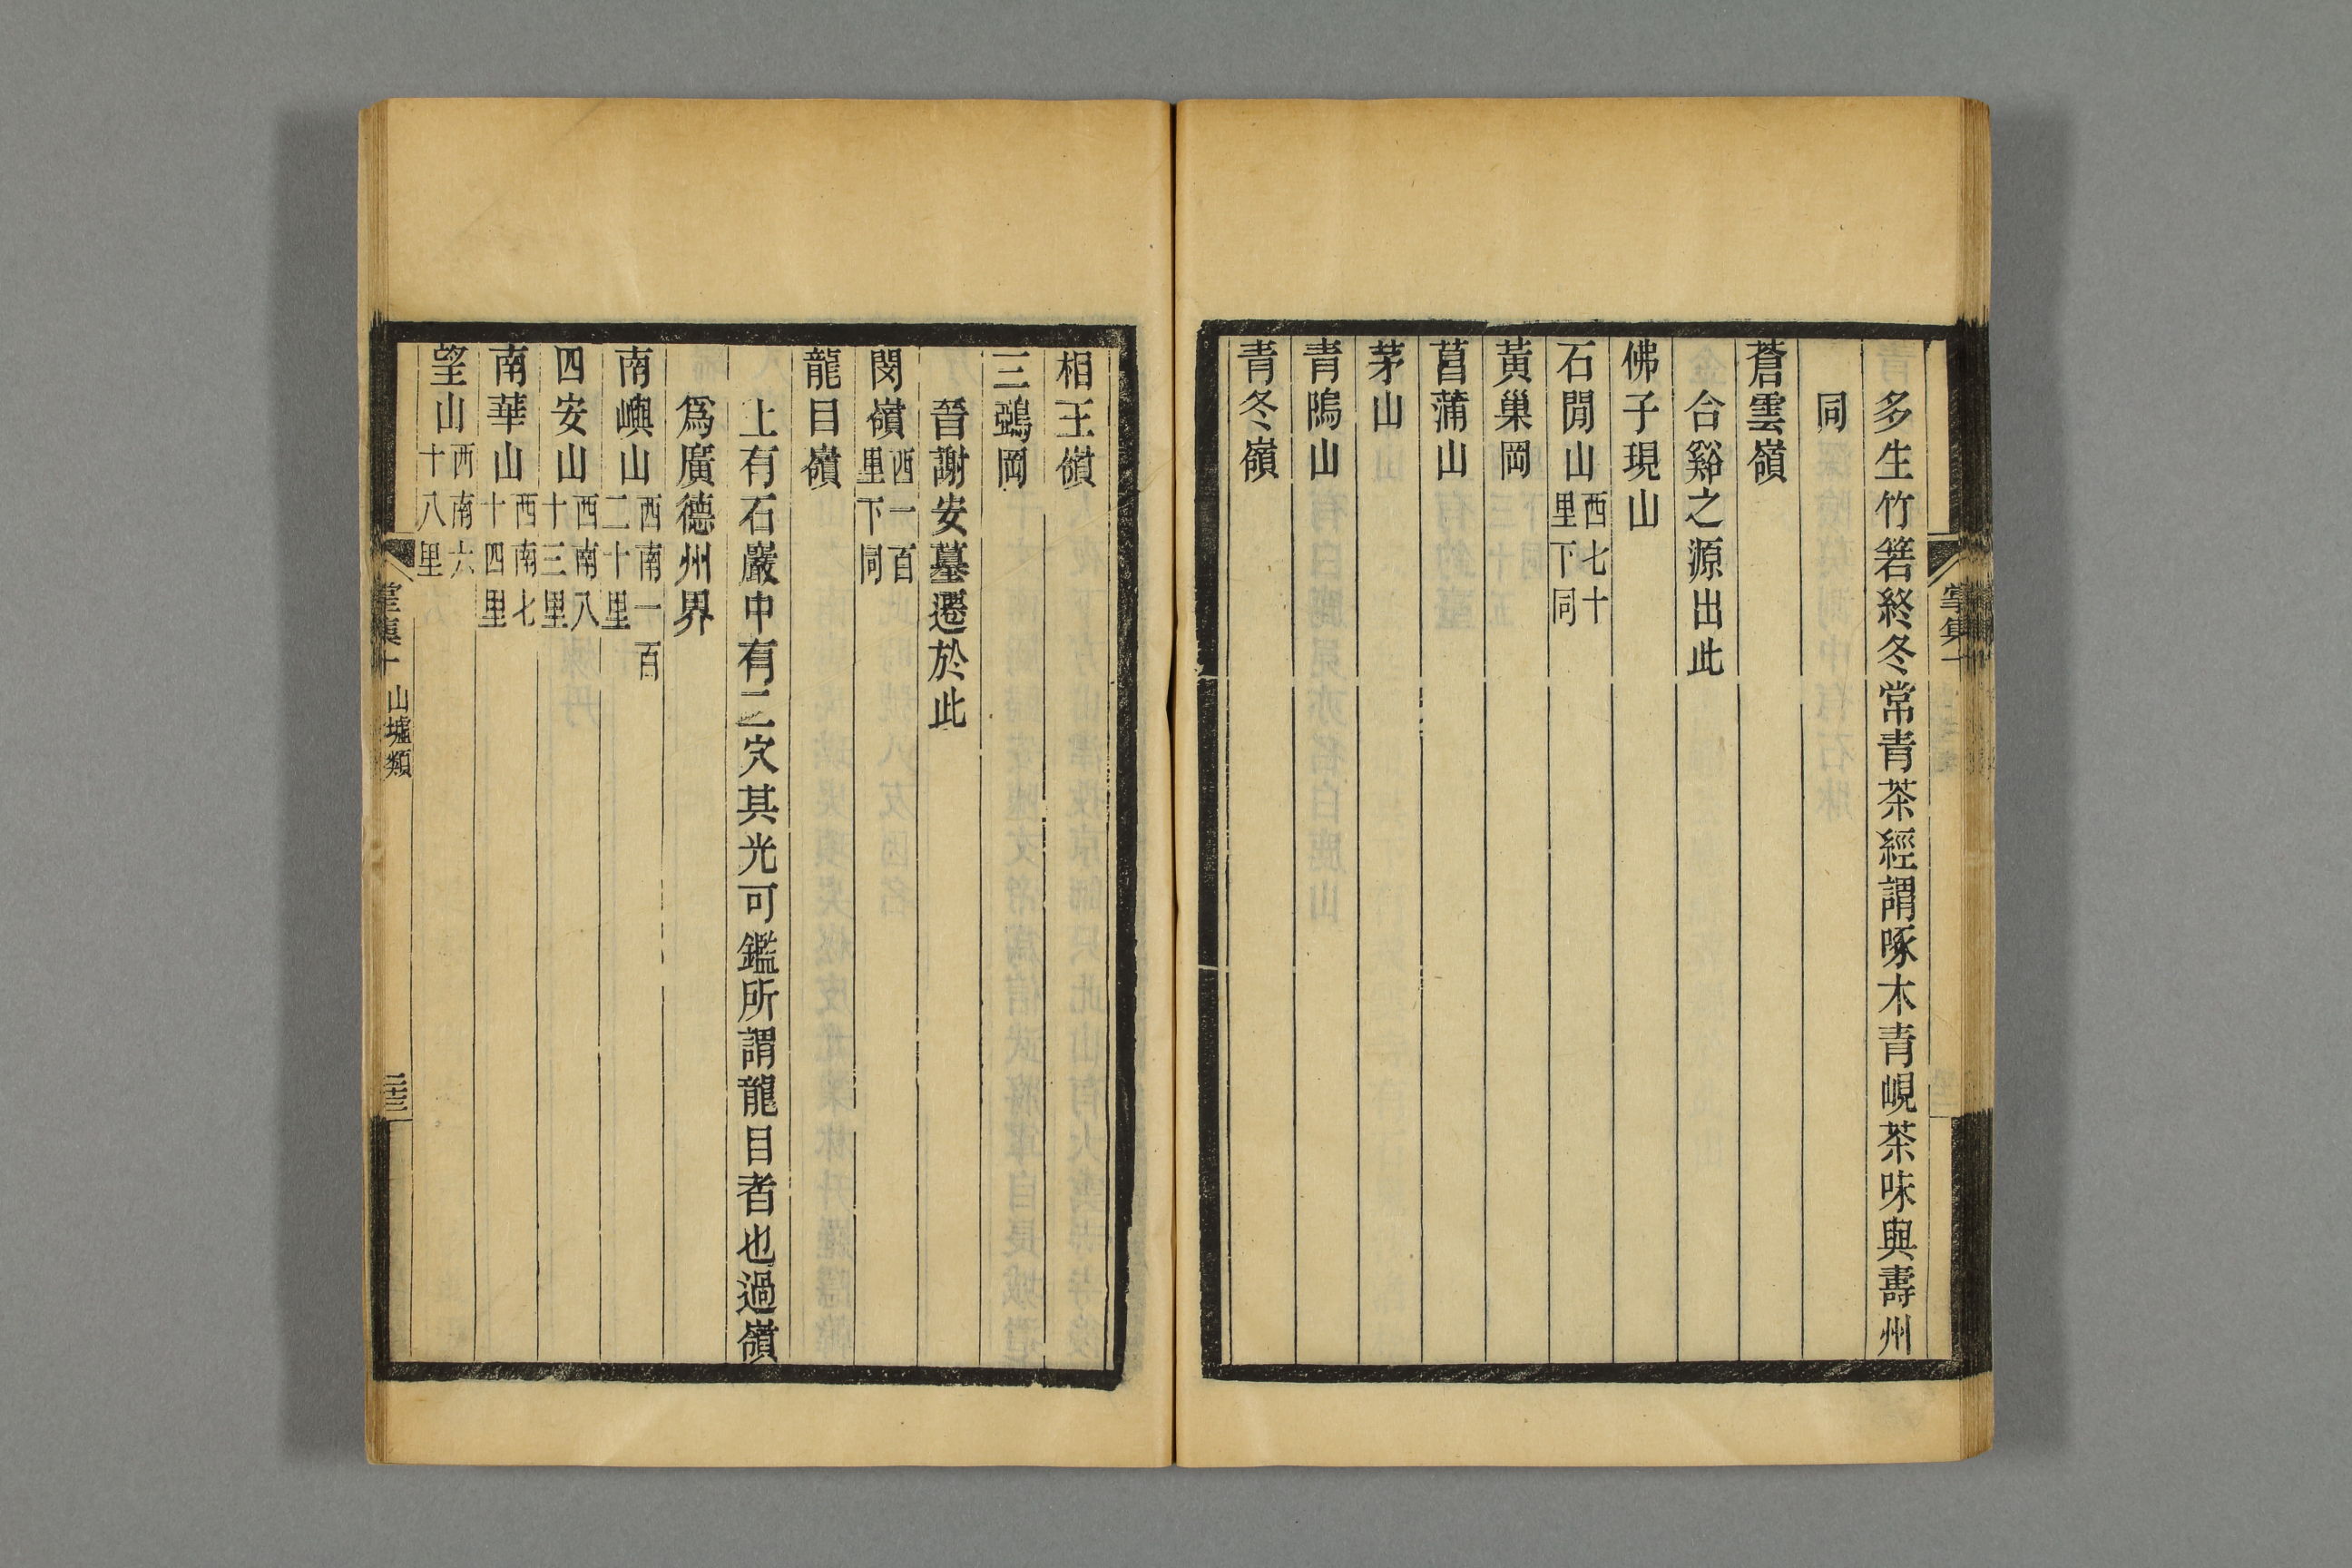 多生竹箬終冬常青茶經謂啄木青峴茶味與壽州
同
蒼雲嶺
合谿之源出此
佛子現山
石閒山西七十
里下同
黃巢岡
菖蒲山
茅山
青隖山
青冬嶺
相王嶺
三鵶岡
晉謝安墓遷於此
閔嶺西一百
里下同
龍目嶺
上有石巖中有二穴其光可鑑所謂龍目者也過嶺
爲廣德州界
南嶼山西南一百
二十里
四安山西南八
十三里
南華山西南七
十四里
望山西南六
十八里
掌集十 山墟類